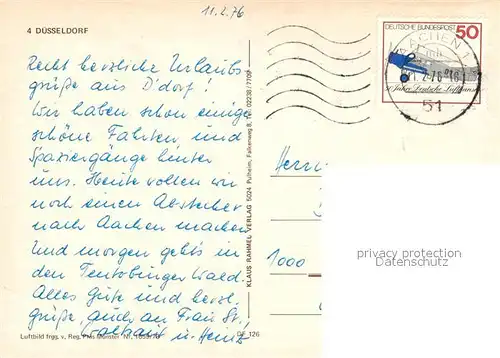 11.2.76
4 DÜSSELDORF
DEUTSCHE BUNDESPOST 50
50 Jahre Deutsche Lufthansa
AACHEN 1
51
Recht herzliche Urlaubs
grüße aus D'dorf!
Wir haben schon einige
schöne Fahrten und
Spaziergänge hinter
uns. Heute wollen wir
noch einen Abstecher
nach Aachen machen
Und morgen geht's in
den Teutoburger Wald.
Alles Gute und herzl.
Grüße, auch an Frau St.
Waltraut u. Heinz
KLAUS RAHMEL VERLAG 5024 Pulheim, Falkenweg 8, Tel. 02238/7700
Herrn
1000
privacy protection
Datenschutz
Luftbild frgg. v. Reg. Präs. Münster Nr.
DF 126